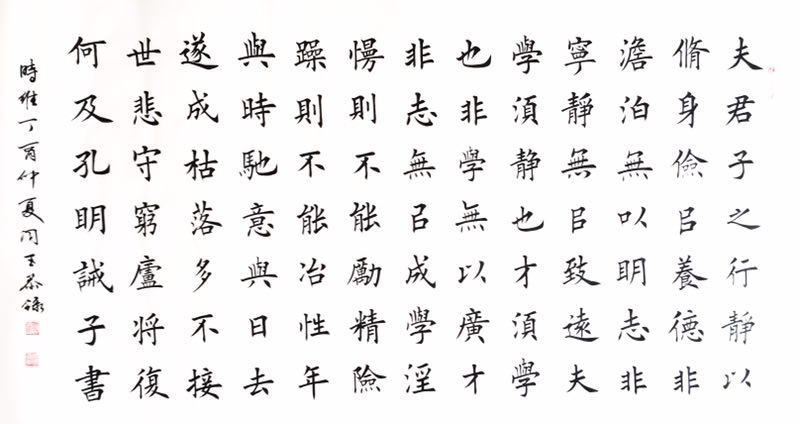 夫君子之行靜以
脩身儉㠯養德非
澹泊無以明志非
寧靜無㠯致遠夫
學須静也才須學
也非學無以廣才
非志無㠯成學淫
慢則不能勵精險
躁則不能冶性年
與時馳意與日去
遂成枯落多不接
世悲守窮廬将復
何及孔明誡子書
時維丁酉仲夏